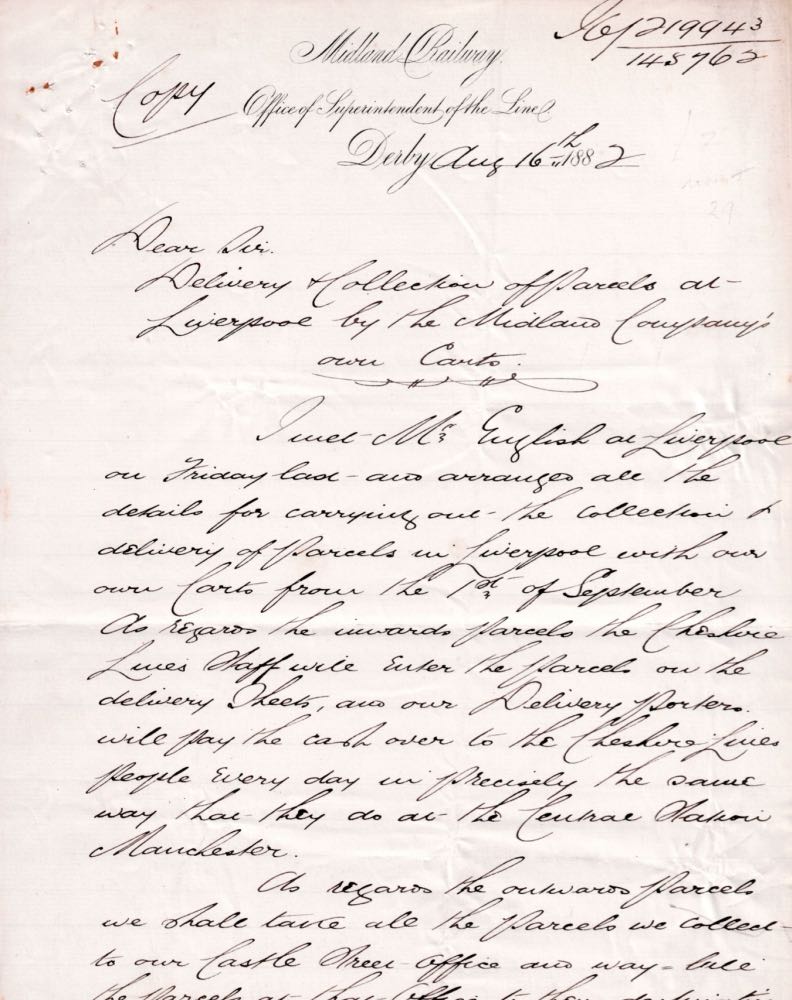 219943
148762
Midland Railway.
Copy
Office of Superintendent of the Line.
Derby Aug 16th 1882
Dear Sir.
Delivery & Collection of Parcels at
Liverpool by the Midland Company's
own Carts.
I met Mr English at Liverpool
on Friday last and arranged all the
details for carrying out the collection &
delivery of Parcels in Liverpool with our
own Carts from the 1st of September
As regards the inwards parcels the Cheshire
Lines Staff will enter the parcels on the
delivery Sheets, and our Delivery porters
will pay the cash over to the Cheshire Lines
people every day in precisely the same
way that they do at the Central Station
Manchester.
As regards the outwards parcels
we shall take all the parcels we collect
to our Castle Street Office and way-bill
the parcels at that Office to their